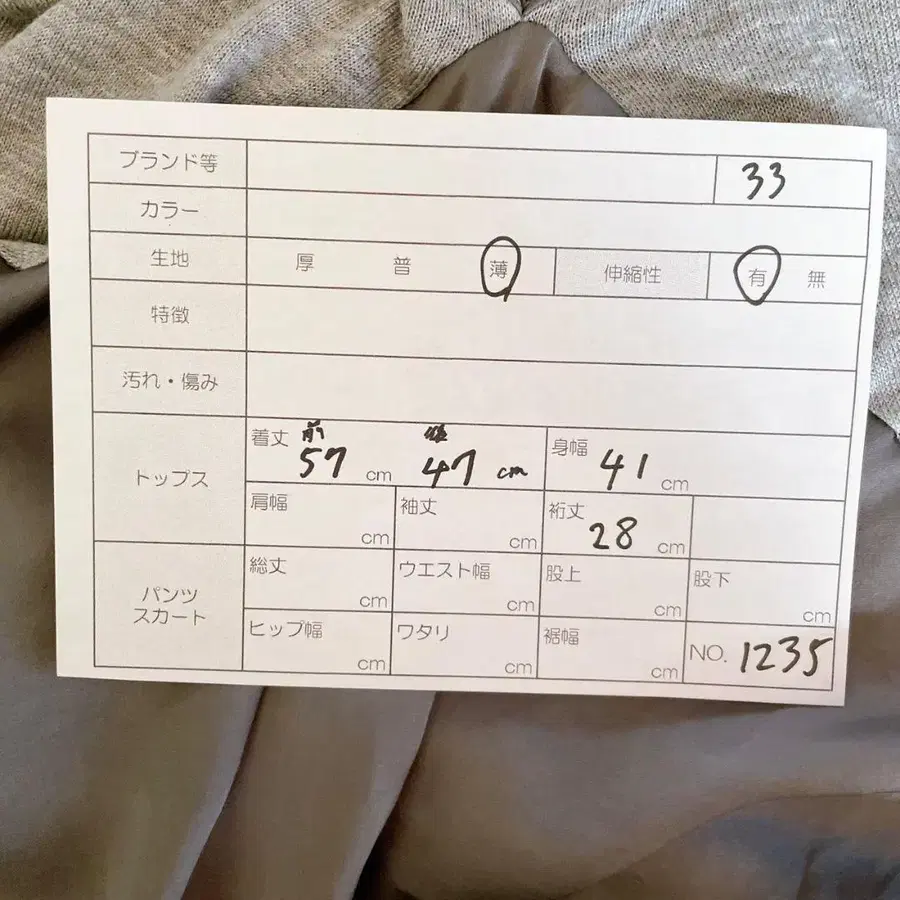 ブランド等 33
カラー
生地 厚 普 薄 伸縮性 有 無
特徴
汚れ・傷み
トップス
着丈 前 57 cm 後 47 cm 身幅 41 cm
肩幅 cm 袖丈 cm 裄丈 28 cm
パンツ
スカート
総丈 cm ウエスト幅 cm 股上 cm 股下 cm
ヒップ幅 cm ワタリ cm 裾幅 cm NO. 1235